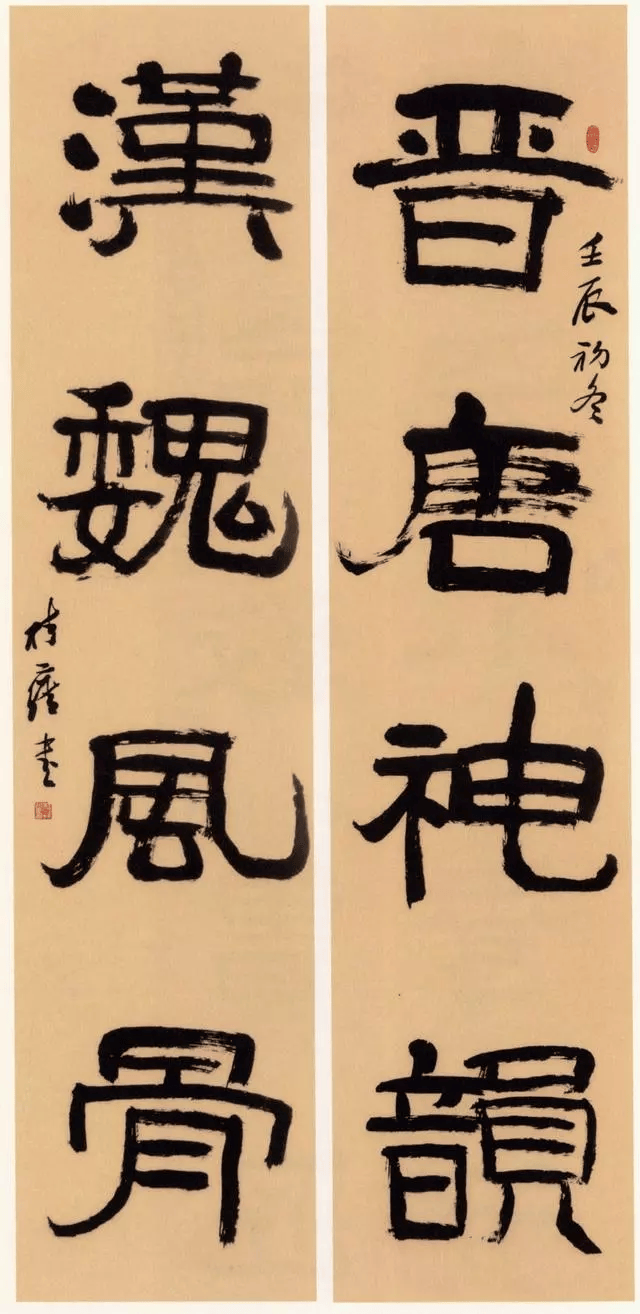 晋唐神韻
壬辰初冬
漢魏風骨
書